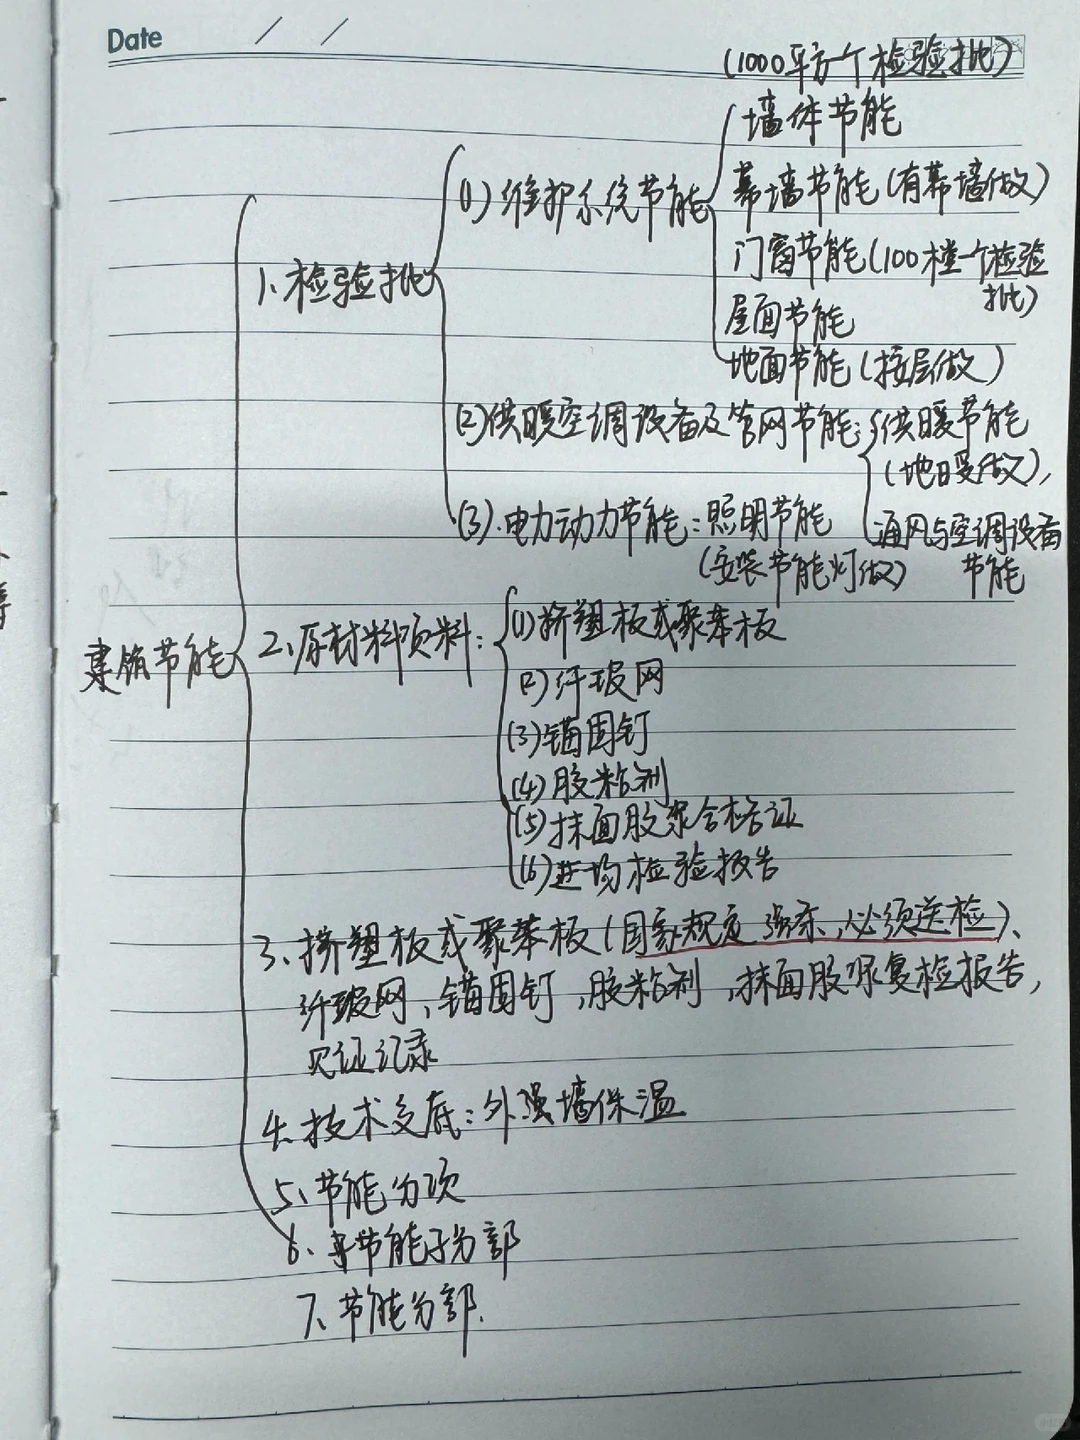 Date / /
(1000平方一个检验批)
墙体节能
(1) 维护系统节能
幕墙节能(有幕墙做)
门窗节能(100樘一个检验批)
1、检验批
屋面节能
地面节能(按层做)
(2)供暖空调设备及管网节能:供暖节能
(地暖做),
(3).电力动力节能:照明节能
通风与空调设备
(安装节能灯做)
节能
建筑节能
2、原材料资料:
(1)挤塑板或聚苯板
(2)纤玻网
(3)锚固钉
(4)胶粘剂
(5)抹面胶浆合格证
(6)进场检验报告
3、挤塑板或聚苯板(国家规定强条,必须送检)、
纤玻网、锚固钉,胶粘剂,抹面胶浆复检报告,
见证记录
4.技术交底:外墙保温
5、节能分项
6、节能子分部
7、节能分部.